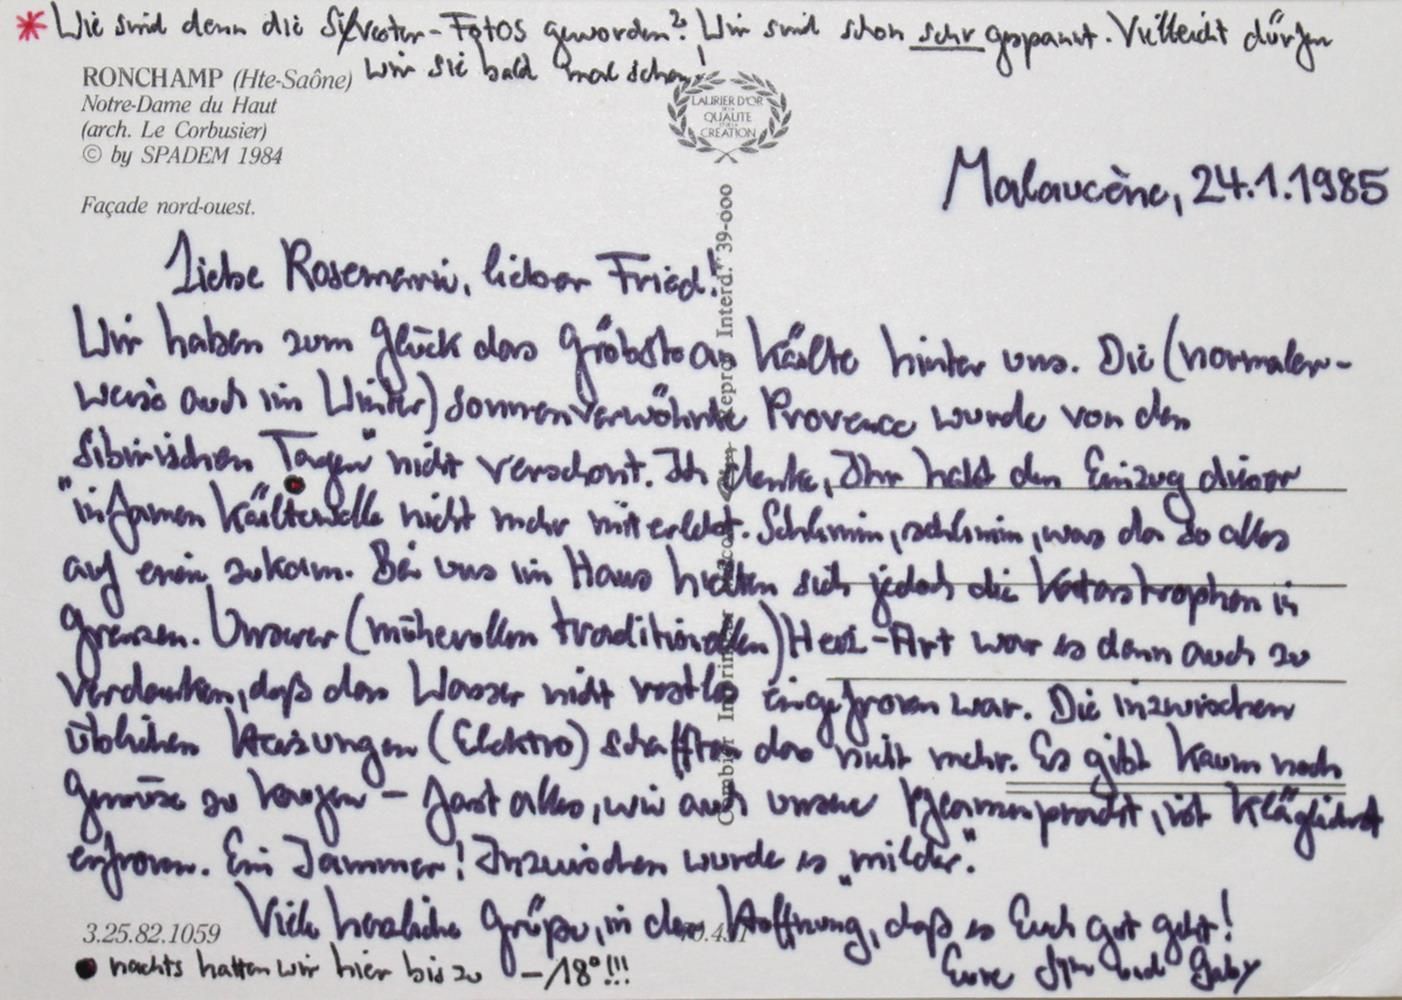 * Wie sind denn die Silvester-Fotos geworden? Wir sind schon sehr gespannt. Vielleicht dürfen
wir sie bald mal sehen!
RONCHAMP (Hte-Saône)
Notre-Dame du Haut
(arch. Le Corbusier)
© by SPADEM 1984
Façade nord-ouest.
LAURIER D'OR
DE LA
QUALITE
ET DE LA
CREATION
Malaucène, 24.1.1985
Liebe Rosemarie, lieber Fried!
Wir haben zum Glück das Gröbste an Kälte hinter uns. Die (normaler-
weise auch im Winter) sonnenverwöhnte Provence wurde von den
"sibirischen Tagen" nicht verschont. Ich denke, Ihr habt den Einzug dieser
"infamen Kältewelle nicht mehr miterlebt. Schlimm, schlimm, was da so alles
auf einen zukam. Bei uns im Haus hielten sich jedoch die Katastrophen in
Grenzen. Unserer (mühevollen traditionellen) Heiz-Art war es dann auch zu
verdanken, daß das Wasser nicht restlos eingefroren war. Die inzwischen
üblichen Heizungen (Elektro) schafften das nicht mehr. Es gibt kaum noch
Gemüse zu kaufen – fast alles, wie auch unsere Pflanzenpracht, ist kläglichst
erfroren. Ein Jammer! Inzwischen wurde es "milder".
Viele herzliche Grüße, in der Hoffnung, daß es Euch gut geht!
Eure und Gaby
3.25.82.1059
● nachts hatten wir hier bis zu –18°!!!
Combier Imprimeur Mâcon Repro. Interd. 39-000